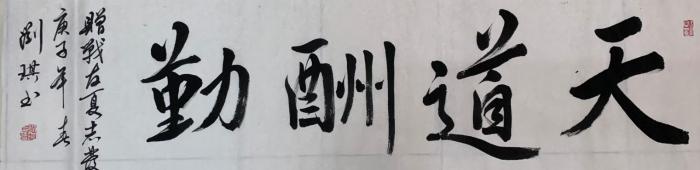 天道酬勤
赠战友夏志发
庚子年春
刘琪书